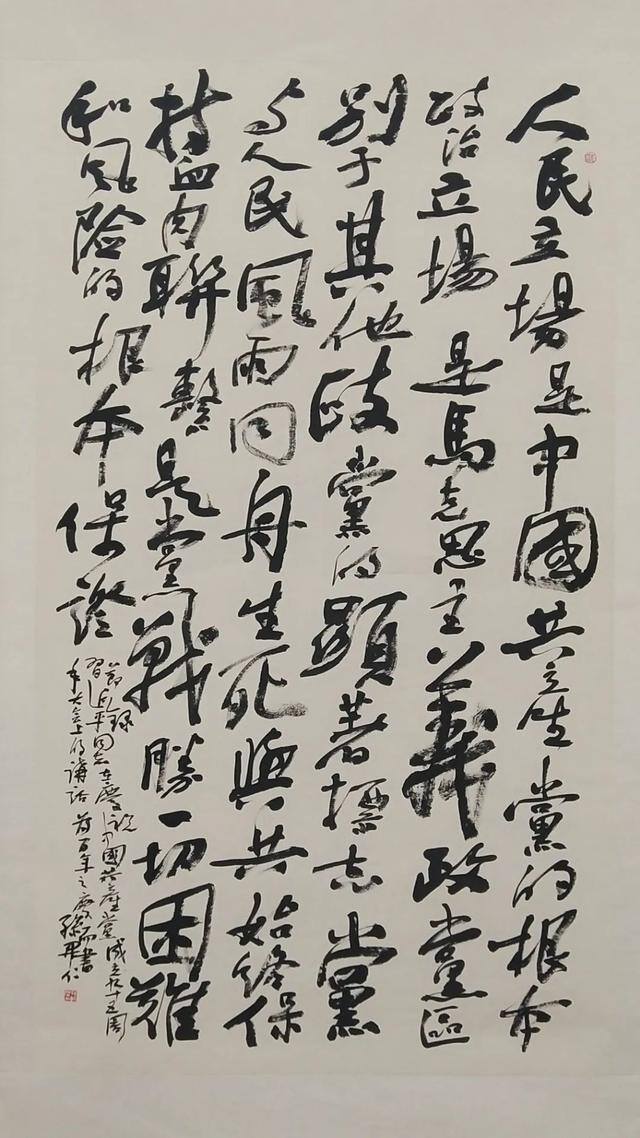 人民立場是中國共産黨的根本
政治立場是馬克思主義政黨區
别于其他政黨的顯著標志黨
与人民風雨同舟生死與共始終保
持血肉聯繫是黨戰勝一切困難
和風险的根本保證
節録
習近平同志在慶祝中國共產黨成立九十五周
年大会上的講話 百年之慶而書